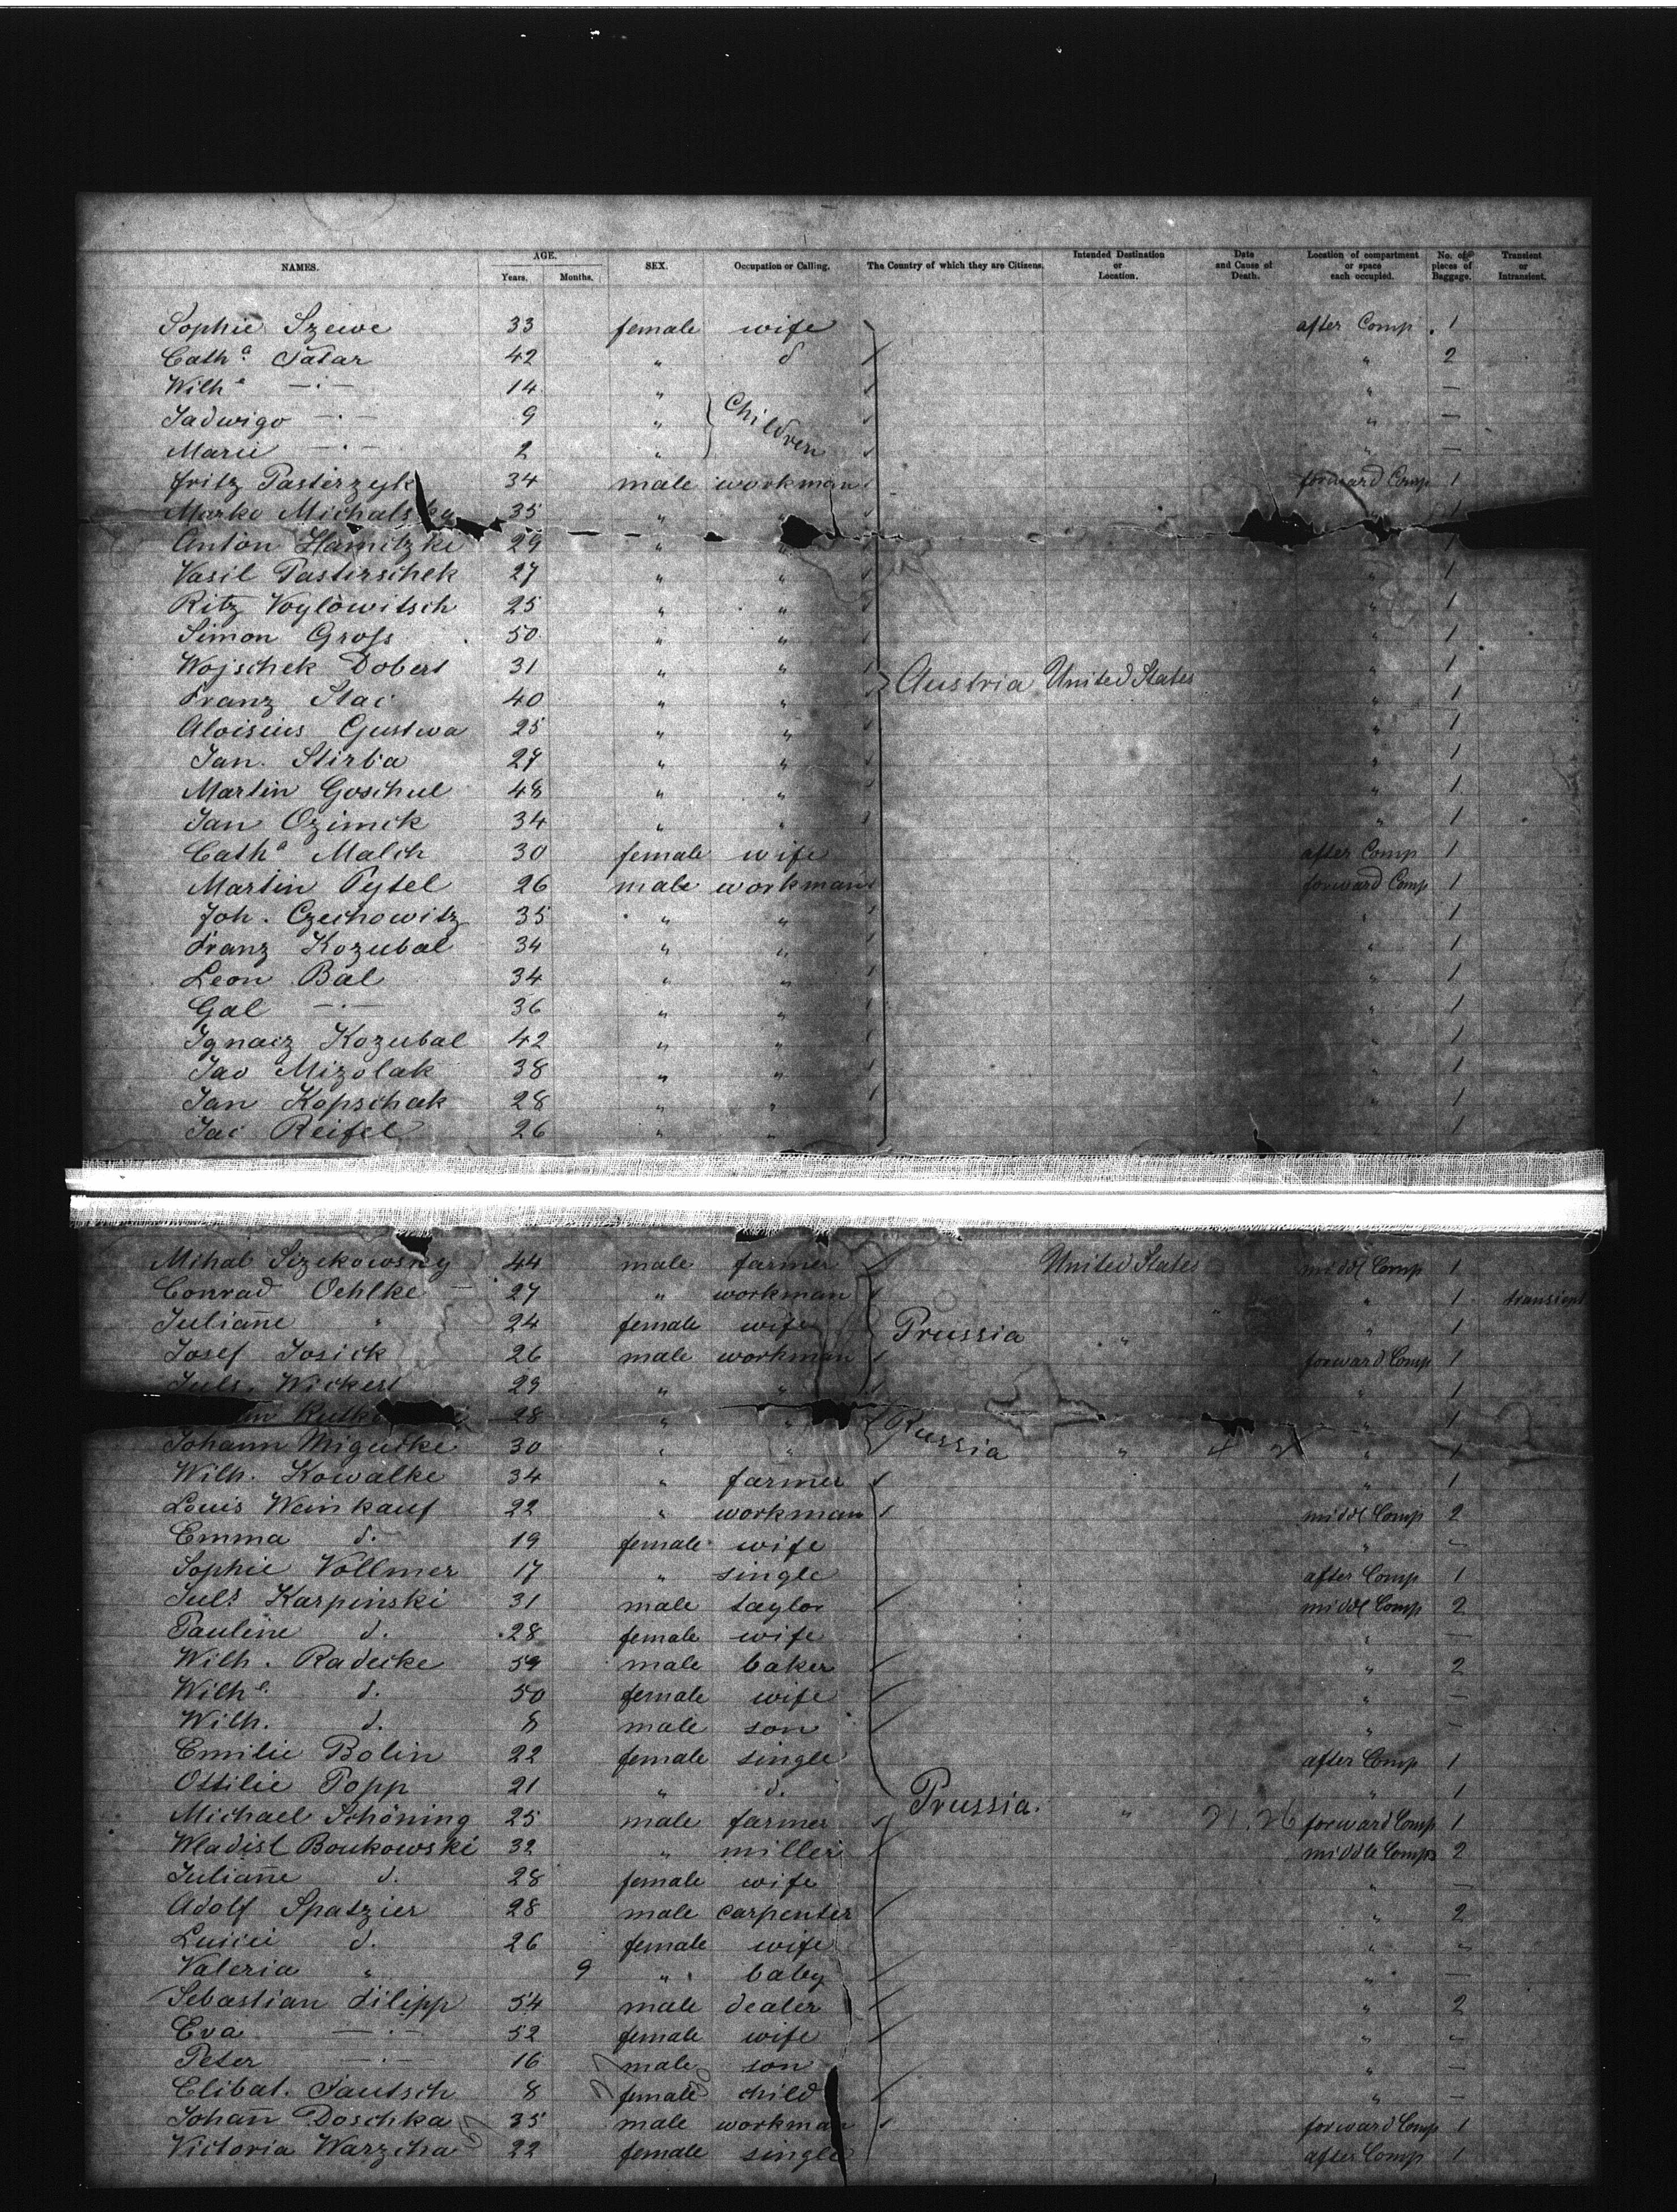 NAMES. AGE. Years. Months. SEX. Occupation or Calling. The Country of which they are Citizens. Intended Destination or Location. Date and Cause of Death. Location of compartment or space each occupied. No. of pieces of Baggage. Transient or Intransient.
Sophie Szewe 33 female wife after Comp. 1
Cath.a Tatar 42 " d " 2
Wilh.e —·— 14 " " —
Jadwigo —·— 9 " Children " —
Marie —·— 2 " " —
Fritz Pasterzyk 34 male workman forward Comp 1
Marko Michalska 35 " " " 1
Anton Hamitzki 29 " " " 1
Vasil Pastirschek 27 " " " 1
Ritz Voylowitsch 25 " " " 1
Simon Gross 50 " " " 1
Wojschek Dobert 31 " " Austria United States " 1
Franz Stac 40 " " " 1
Aloisius Gustwa 25 " " " 1
Jan. Stirba 27 " " " 1
Martin Goschul 48 " " " 1
Jan Ozimek 34 " " " 1
Cath.a Malch 30 female wife after Comp 1
Martin Pytel 26 male workman forward Comp 1
Joh. Czechowitz 35 " " " 1
Franz Kozubal 34 " " " 1
Leon Bal 34 " " " 1
Gal —·— 36 " " " 1
Ignacz Kozubal 42 " " " 1
Jao Mizolak 38 " " " 1
Jan Kopschak 28 " " " 1
Jac Reifel 26 " " " 1
Mihal Sizekowsny 44 male farmer United States middl Comp 1
Conrad Oehlke — 27 " workman " " 1 transient
Julian̄e " 24 female wife Prussia " " 1
Josef Josick 26 male workman forward Comp 1
Juls. Wickert 29 " " " 1
28 " " Russia " 1
Johann Migudke 30 " " " " 1
Wilh. Kowalke 34 " farmer " 1
Louis Weinkauf 22 " workman middl Comp 2
Emma d. 19 female wife " —
Sophie Vollmer 17 " single after Comp 1
Juls. Karpinski 31 male taylor middl Comp 2
Pauline d. 28 female wife " —
Wilh. Radecke 59 male baker " 2
Wilh.e d. 50 female wife " —
Wilh. d. 8 male son " —
Emilie Bolin 22 female single after Comp 1
Ottilie Popp 21 " d. Prussia. " " 1
Michael Schöning 25 male farmer 21.26 forward Comp 1
Wladisl Boukowski 32 " miller middle Comp 2
Julian̄e d. 28 female wife " —
Adolf Spatzier 28 male carpenter " 2
Luicei d. 26 female wife " —
Valeria " 9 " baby " —
Sebastian Filipp 54 male dealer " 2
Eva —·— 52 female wife " —
Peter —·— 16 male son " —
Elibat. Tautsch 8 female child " —
Johan̄ Doschka 35 male workman forward Comp 1
Victoria Warzcha 22 female single after Comp 1